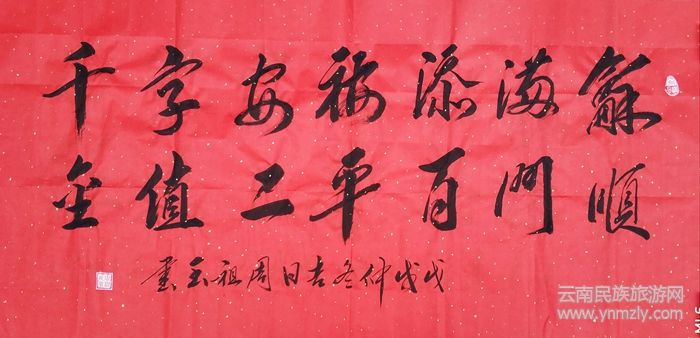 龢順
滿門
添百
福平
安二
字值
千金
戊戌仲冬吉日周祖玉書
云南民族旅游网
www.ynmzly.com